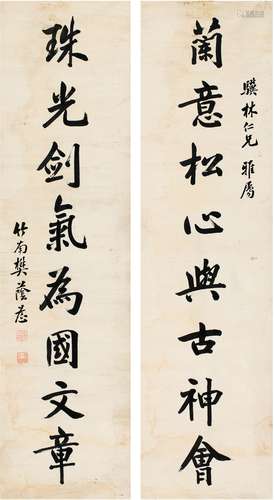 蘭意松心與古神會
驥林仁兄 雅屬
珠光劍氣為國文章
竹南樊蔭蓀